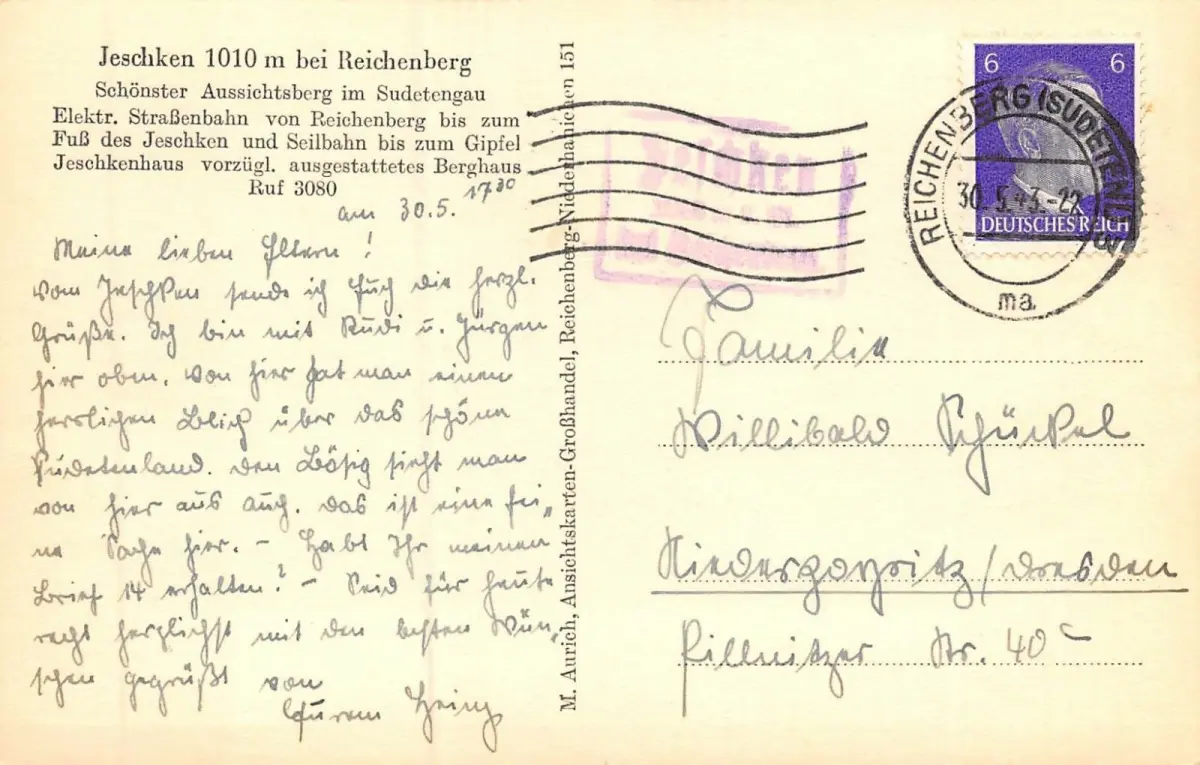 Jeschken 1010 m bei Reichenberg
Schönster Aussichtsberg im Sudetengau
Elektr. Straßenbahn von Reichenberg bis zum
Fuß des Jeschken und Seilbahn bis zum Gipfel
Jeschkenhaus vorzügl. ausgestattetes Berghaus
Ruf 3080
am 30.5. 17 30
Meine lieben Eltern!
Vom Jeschken sende ich Euch die herzl.
Grüße. Ich bin mit Rudi u. Jürgen
hier oben. Von hier hat man einen
herrlichen Blick über das schöne
Sudetenland. Den Bösig sieht man
von hier aus auch. Das ist eine fei„
ne Sache hier. – Habt Ihr meinen
Brief 14 erhalten? – Seid für heute
recht herzlichst mit den besten Wün„
schen gegrüßt von
Eurem Heinz
M. Aurich, Ansichtskarten-Großhandel, Reichenberg-Niederhanichen 151
6 6
DEUTSCHES REICH
REICHENBERG (SUDETENL) 3
30.5.43.-22
ma
Jeschken
Familie
Willibald Schückel
Niederpoyritz / Dresden
Pillnitzer Str. 40 c